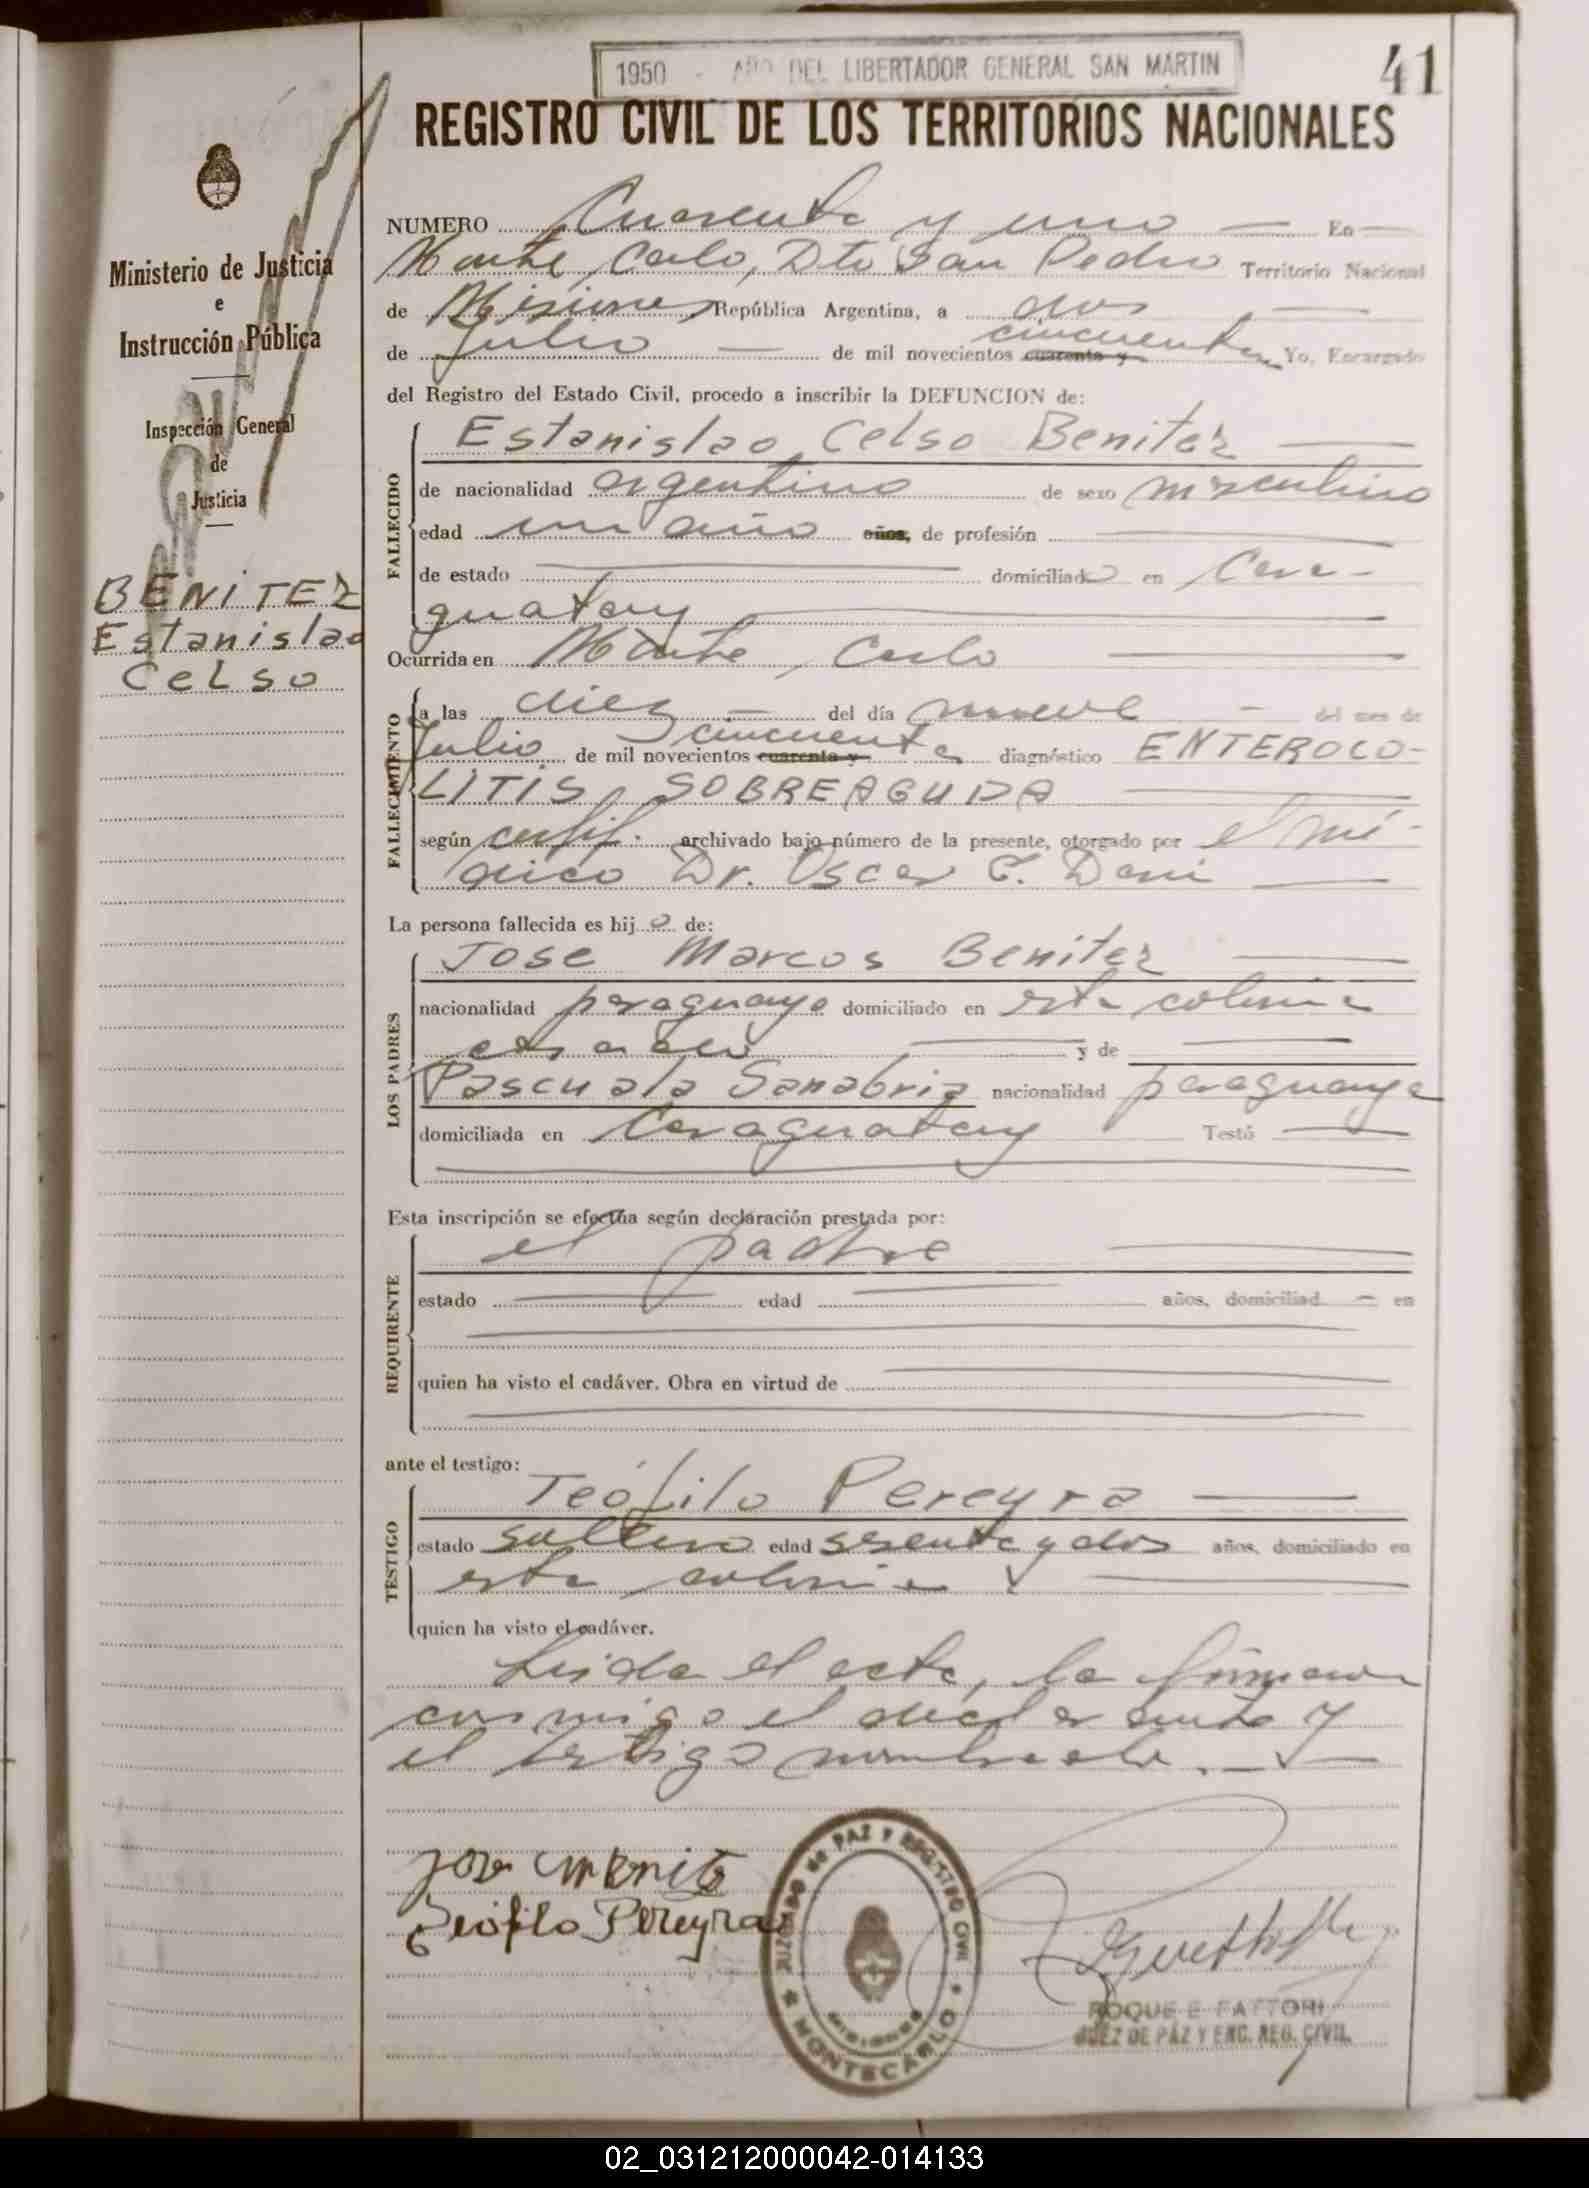 1950 - AÑO DEL LIBERTADOR GENERAL SAN MARTIN
41
REGISTRO CIVIL DE LOS TERRITORIOS NACIONALES
Ministerio de Justicia
e
Instrucción Pública
Inspección General
de
Justicia
BENITEZ
Estanislao
Celso
NUMERO Cuarenta y uno — En —
Monte Carlo, Dto San Pedro Territorio Nacional
de Misiones República Argentina, a dos —
de Julio — de mil novecientos cuarenta y cincuenta Yo, Encargado
del Registro del Estado Civil, procedo a inscribir la DEFUNCION de:
FALLECIDO
Estanislao Celso Benitez —
de nacionalidad argentino de sexo masculino
edad un año años, de profesión —
de estado — domiciliado en Cara-
guatay —
Ocurrida en Monte Carlo —
FALLECIMIENTO
a las diez — del día nueve - del mes de
Julio de mil novecientos cuarenta y cincuenta diagnóstico ENTEROCO-
LITIS SOBREAGUDA —
según certif. archivado bajo número de la presente, otorgado por el mé-
dico Dr. Oscar C. Dani —
La persona fallecida es hijo de:
LOS PADRES
Jose Marcos Benitez —
nacionalidad paraguayo domiciliado en esta colonia
casado — y de —
Pascuala Sanabria nacionalidad paraguaya
domiciliada en Caraguatay Testó —
Esta inscripción se efectúa según declaración prestada por:
REQUIRENTE
el padre —
estado — edad — años, domiciliad — en
quien ha visto el cadáver. Obra en virtud de —
ante el testigo:
TESTIGO
Teófilo Pereyra —
estado soltero edad sesenta y dos años, domiciliado en
esta colonia —
quien ha visto el cadáver.
Leida el acta, la firman
conmigo el declarante y
el testigo nombrado. —
Teófilo Pereyra
JUZGADO de PAZ Y REGISTRO CIVIL
MISIONES
MONTECARLO
ROQUE E. FATTORI
JUEZ DE PAZ Y ENC. REG. CIVIL
02_031212000042-014133